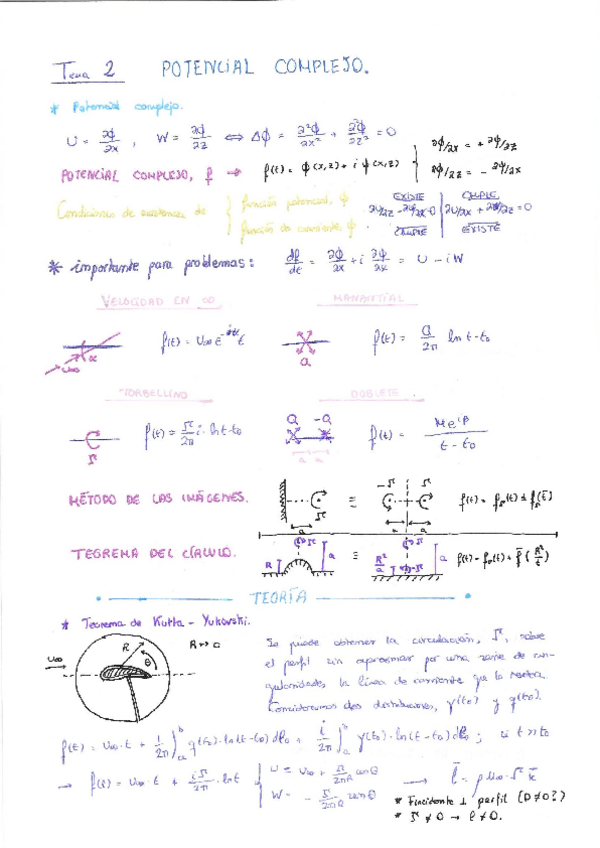 Tema 2 POTENCIAL COMPLEJO.
* Potencial complejo.
U = ∂ϕ/∂x , W = ∂ϕ/∂z ⇔ Δϕ = ∂²ϕ/∂x² + ∂²ϕ/∂z² = 0
POTENCIAL COMPLEJO, f → f(t) = ϕ(x,z) + i ψ(x,z) { ∂ϕ/∂x = + ∂ψ/∂z
∂ϕ/∂z = - ∂ψ/∂x
Condiciones de existencia de { función potencial, ϕ
función de corriente, ψ
EXISTE CUMPLE
CUMPLE EXISTE
* importante para problemas: df/dt = ∂ϕ/∂x + i ∂ψ/∂x = U - iW
VELOCIDAD EN ∞ MANANTIAL
U∞ α f(t) = U∞ e^-iα t
Q f(t) = Q/2π ln t-t₀
TORBELLINO DOBLETE
Γ f(t) = Γ/2π i · ln t-t₀
Q -Q a a f(t) = M e^iβ / t - t₀
MÉTODO DE LAS IMÁGENES. Γ a ≡ -Γ Γ a a
TEOREMA DEL CÍRCULO. R a ≡ R²/a a
TEORÍA
* Teorema de Kutta - Yukovski.
U∞ R θ
Se puede obtener la circulación, Γ, sobre
el perfil sin aproximar por una serie de sin-
gularidades la línea de corriente que lo rodea.
Consideramos dos distribuciones, γ(t₀) y q(t₀).
f(t) = U∞ · t + 1/2π ∫ q(t₀) · ln(t-t₀) dt₀ + i/2π ∫ γ(t₀) · ln(t-t₀) dt₀ ; si t >> t₀
→ f(t) = U∞ · t + iΓ/2π · ln t
→ l̄ = ρ U∞ · Γ k̄
* Fincidente ⊥ perfil (D≠0?)
* Γ ≠ 0 → l ≠ 0.